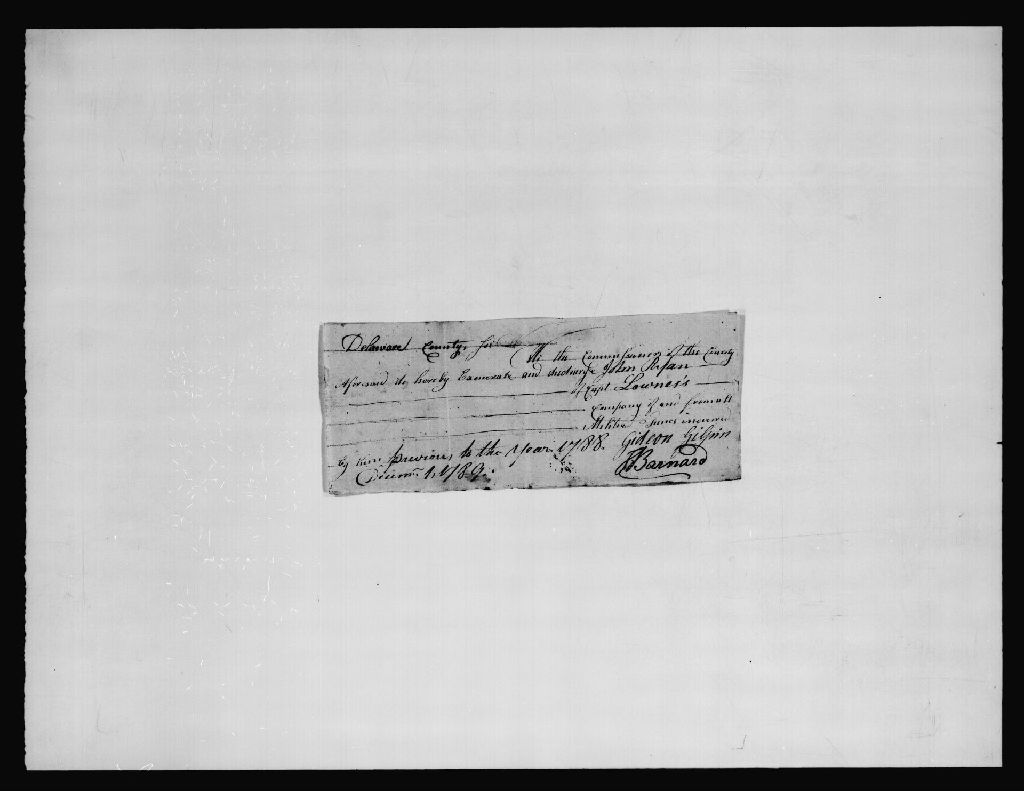 Delaware County ss
We the Commissioners of the County
Aforesaid do hereby Exonerate and discharge John Ryan
of Capt. Lowness
Company of and from all
Militia fines incurred
by him previous to the Year 1788. Gideon Gilpin
1, 1789. Barnard